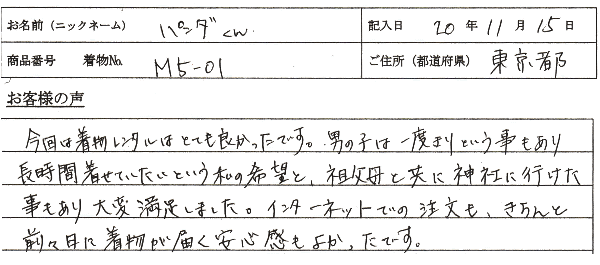 お名前（ニックネーム） パンダくん 記入日 20年11月15日
商品番号 着物No. M5-01 ご住所（都道府県） 東京都
お客様の声
今回は着物レンタルはとても良かったです。男の子は一度きりという事もあり
長時間着せていたいという私の希望と、祖父母と共に神社に行けた
事もあり大変満足しました。インターネットでの注文も、きちんと
前々日に着物が届く安心感もよかったです。